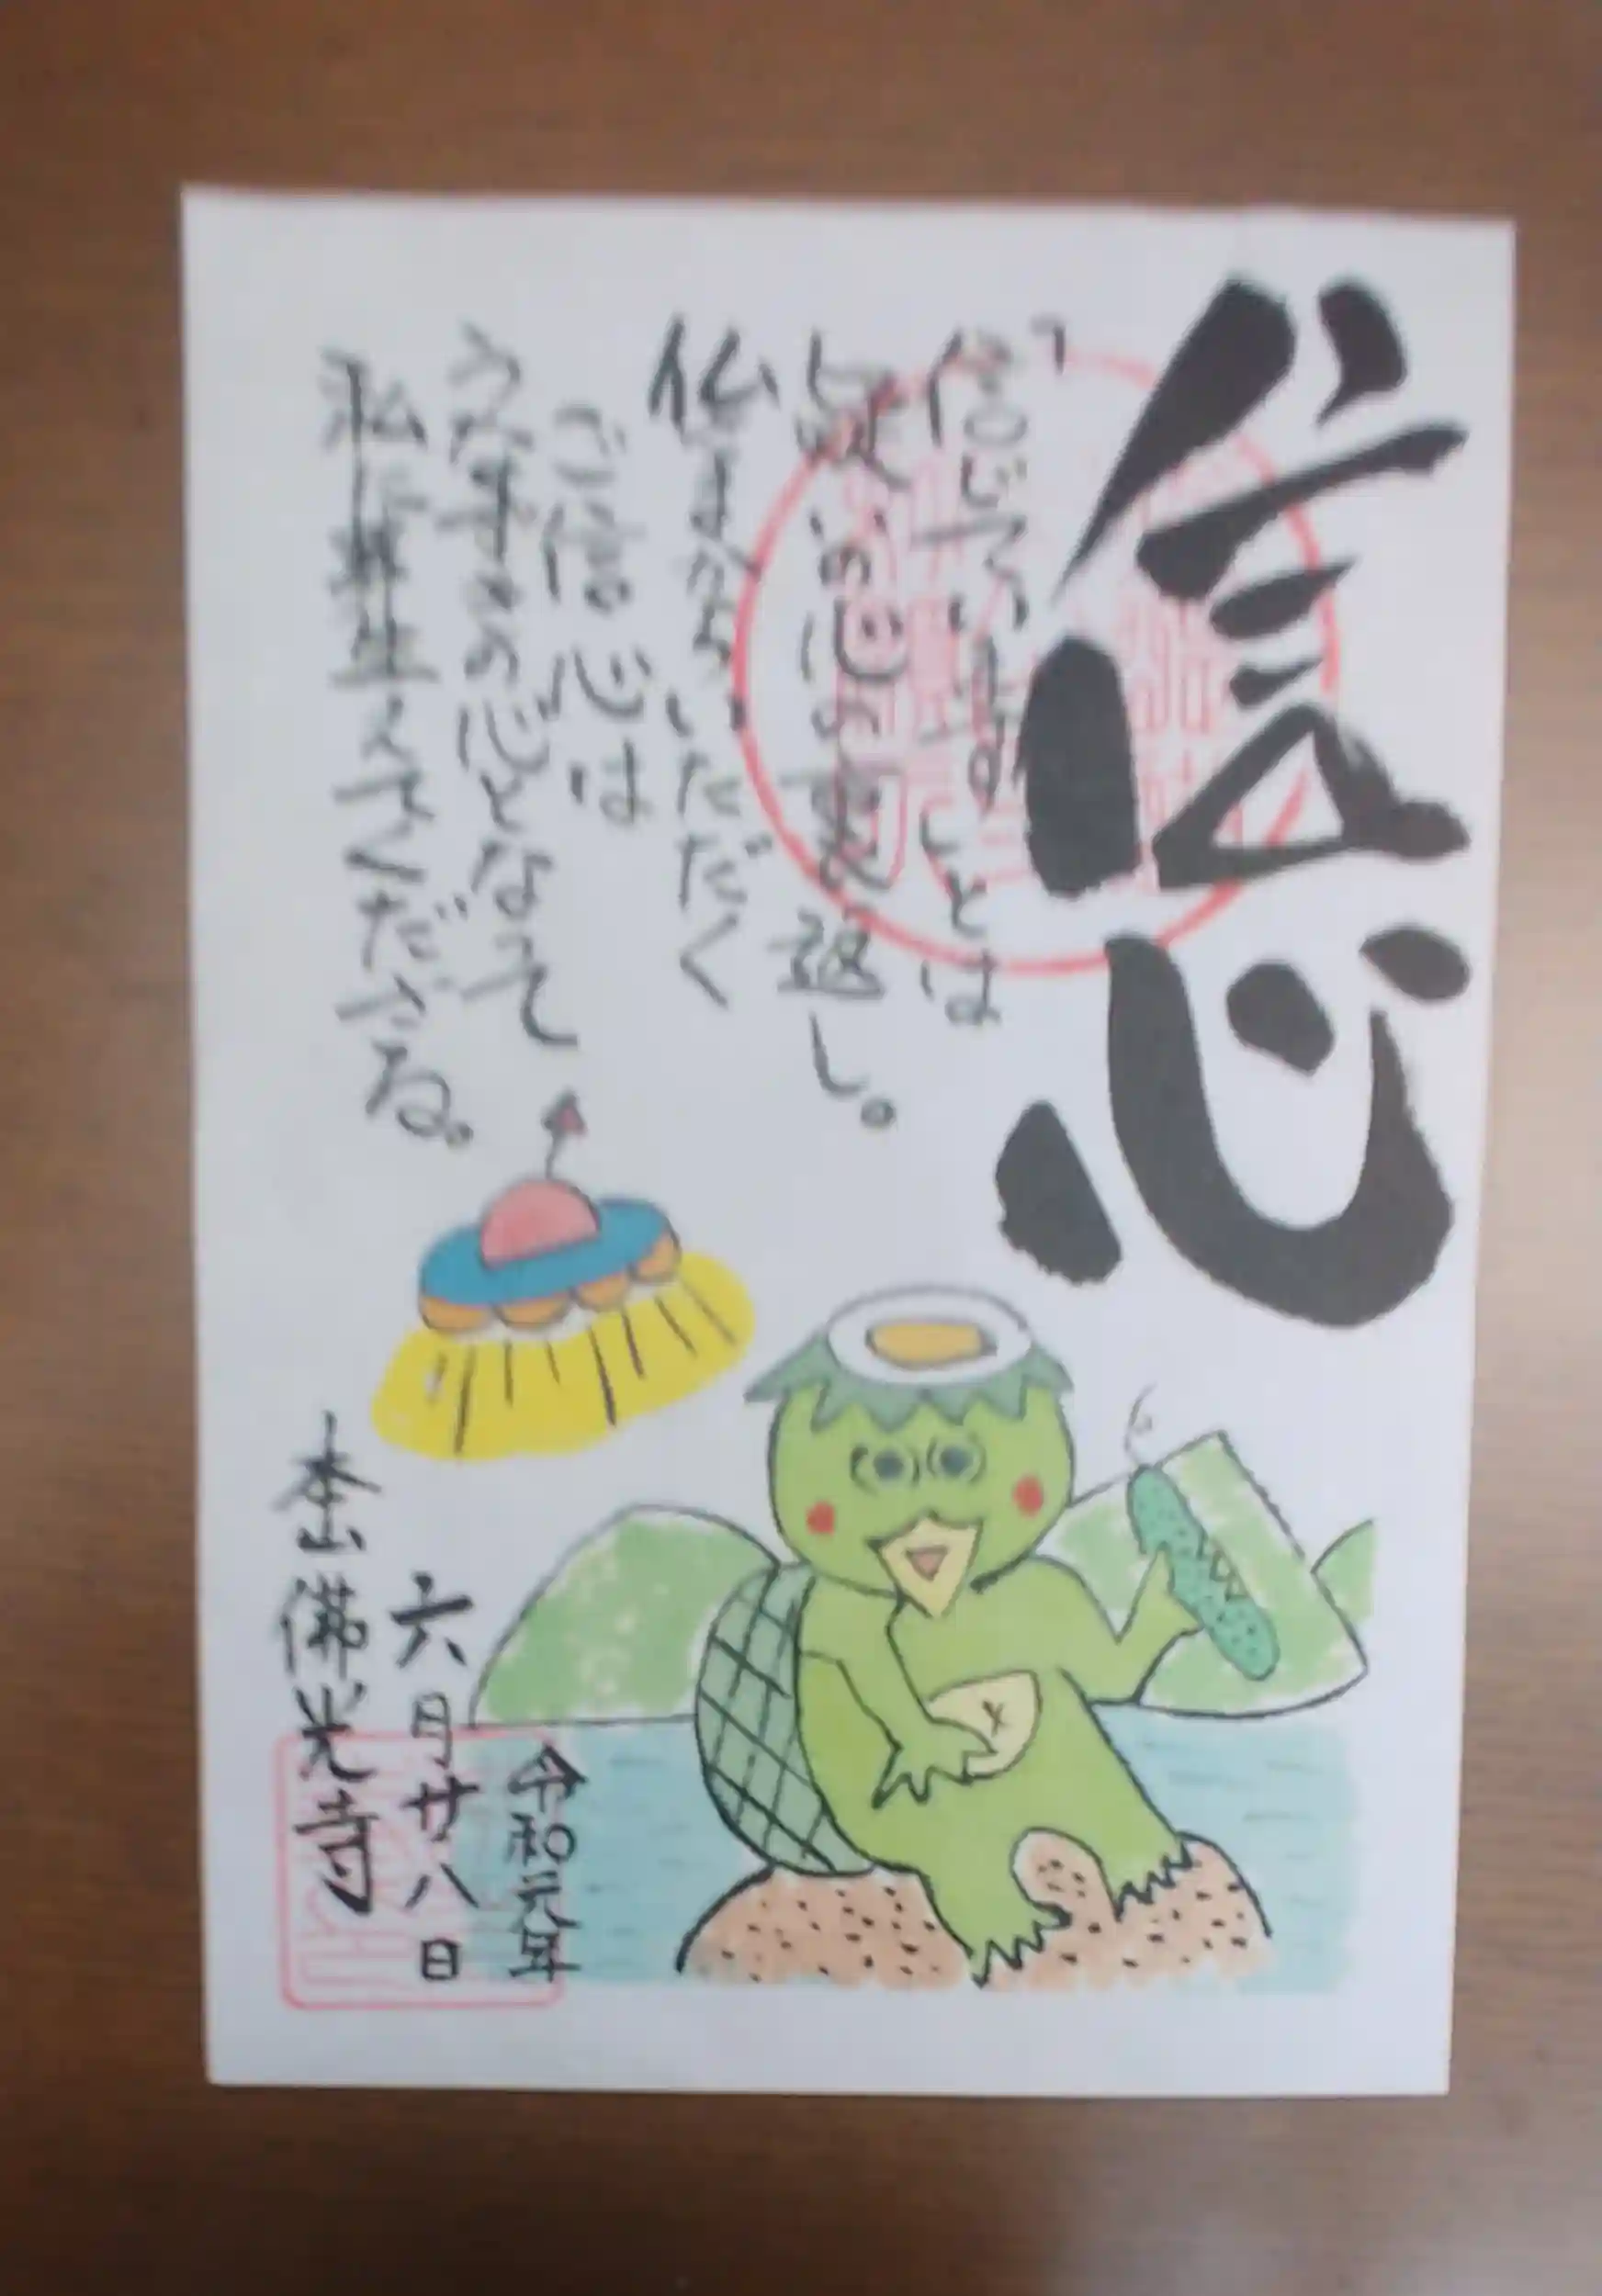 信心
「信じていますとは
疑いの心の裏返し。
仏さまからいただく
ご信心は
うなずきの心となって
私に芽生えてくださる。
令和元年
六月廿八日
本山佛光寺